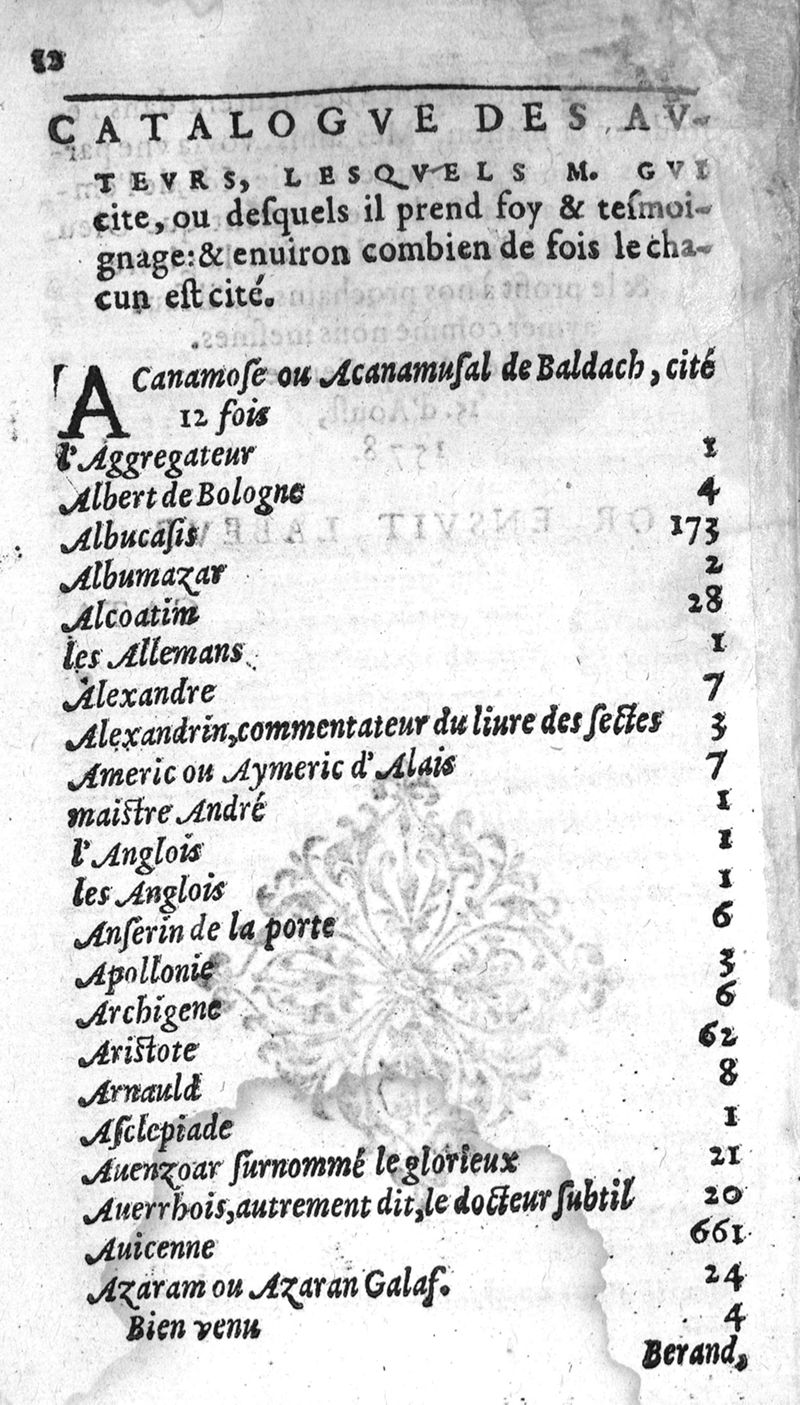 12
CATALOGVE DES AV-
TEVRS, LESQVELS M. GVI
cite, ou deſquels il prend foy & teſmoi-
gnage: & enuiron combien de fois le cha-
cun eſt cité.
ACanamoſe ou Acanamuſal de Baldach, cité
12 fois
l'Aggregateur 1
Albert de Bologne 4
Albucaſis 173
Albumazar 2
Alcoatim 28
les Allemans 1
Alexandre 7
Alexandrin, commentateur du liure des ſectes 3
Americ ou Aymeric d'Alais 7
maiſtre André 1
l'Anglois 1
les Anglois 1
Anſerin de la porte 6
Apollonie 3
Archigene 6
Ariſtote 62
Arnauld 8
Aſclepiade 1
Auenzoar ſurnommé le glorieux 21
Auerrhois, autrement dit, le docteur ſubtil 20
Auicenne 661
Azaram ou Azaran Galaf. 24
Bien venu 4
Berand,